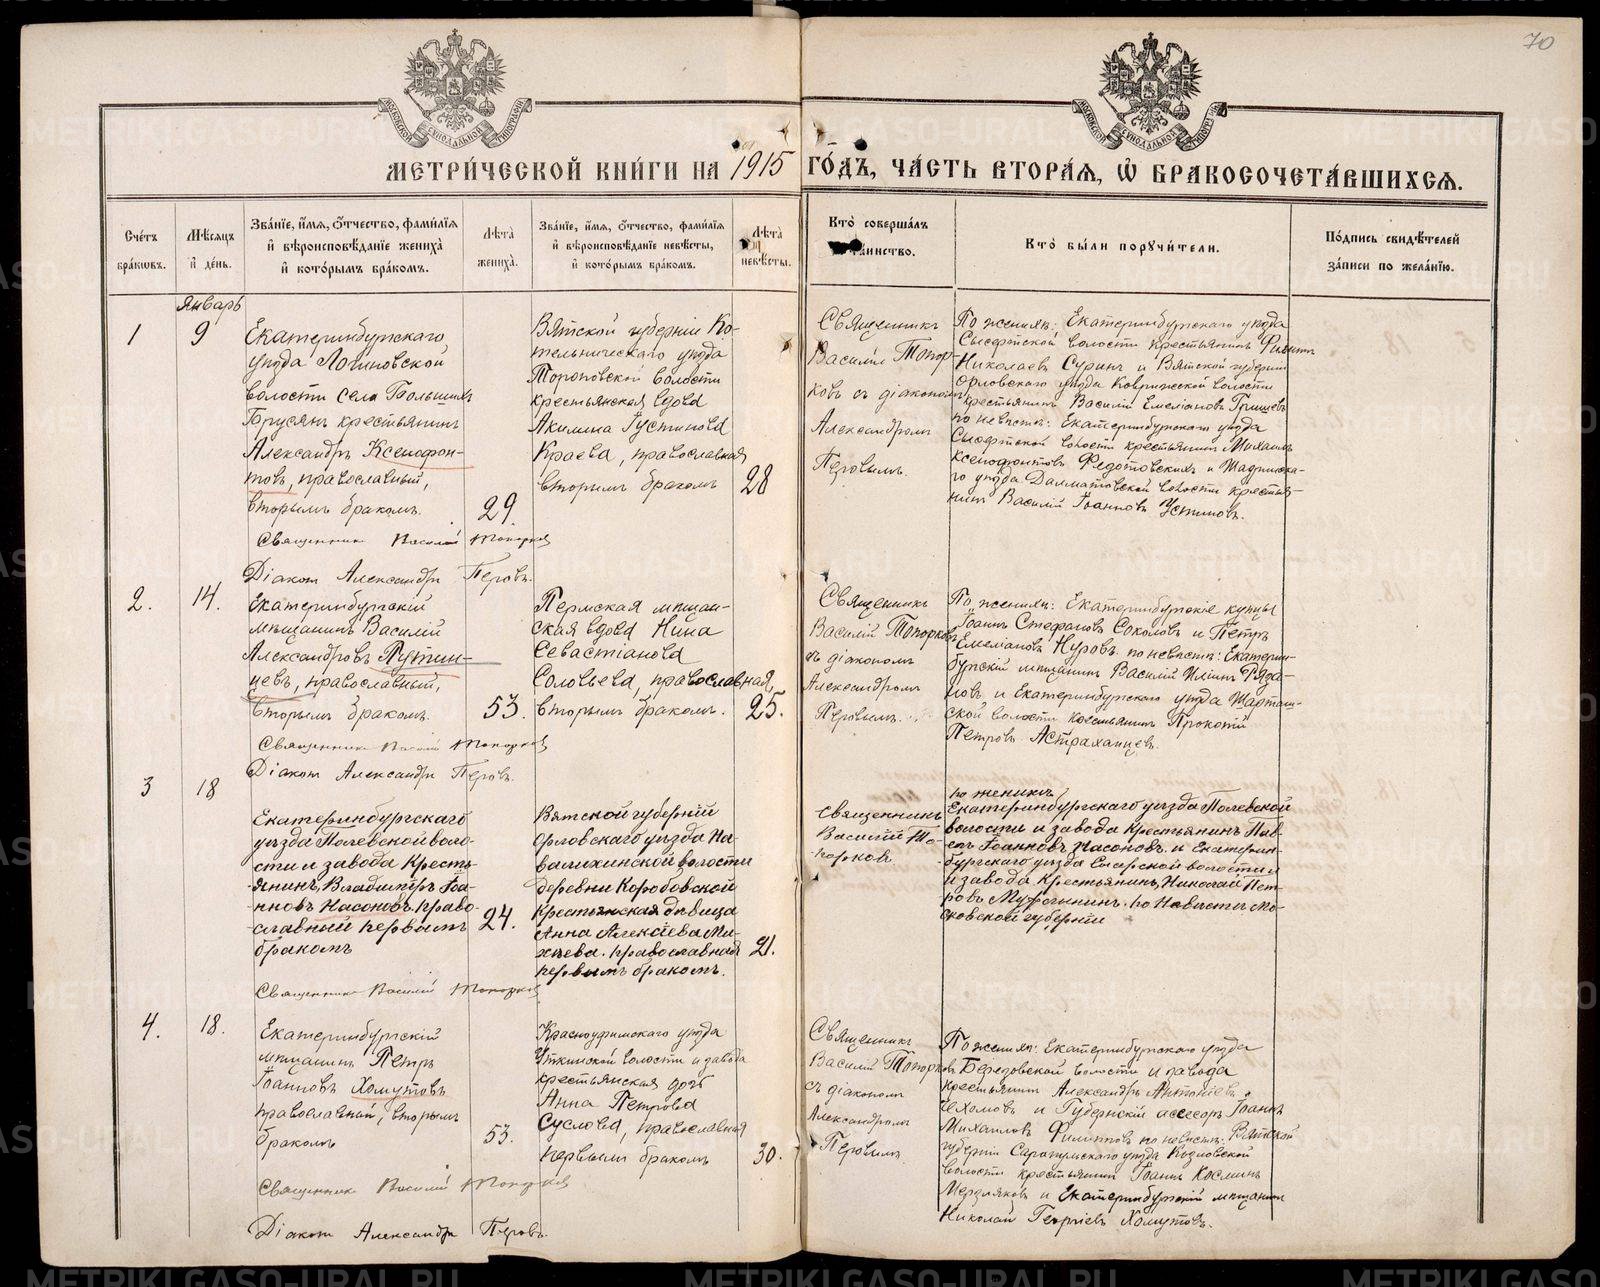 70
МОСКОВСКОЙ СѴНОДАЛЬНОЙ ТИПОГРАФІИ
МОСКОВСКОЙ СѴНОДАЛЬНОЙ ТИПОГРАФІИ
МЕТРИ́ЧЕСКОЙ КНИ́ГИ НА 1915 ГО́ДЪ, ЧА́СТЬ ВТОРА́Я, Ѽ БРАКОСОЧЕТА́ВШИХСЯ.
Сче́тъ бра́кѡвъ.
Мѣ́сяцъ и҆ де́нь.
Зва́нїе, и҆́мя, ѻ҆́тчество, фами́лїя и҆ вѣроисповѣ́данїе жениха̀ и҆ кото́рымъ бра́комъ.
Лѣ́та жениха̀.
Зва́нїе, и҆́мя, ѻ҆́тчество, фами́лїя и҆ вѣроисповѣ́данїе невѣ́сты, и҆ кото́рымъ бра́комъ.
Лѣ́та невѣ́сты.
Кто̀ соверша́лъ таинство.
Кто̀ бы́ли порꙋчи́тели.
По́дпись свидѣ́телей за́писи по жела́нїю.
Январь
1
9
Екатеринбургскаго
уѣзда Логиновской
волости села Большихъ
Брусянъ крестьянинъ
Александръ Ксенофон-
товъ, православный,
вторымъ бракомъ.
29.
Вятской губерніи Ко-
тельническаго уѣзда
Тороповской волости
крестьянская вдова
Акилина Густинова
Краева, православная
вторымъ бракомъ
28
Священникъ
Василій Топор-
ковъ съ діакономъ
Александромъ
Перовымъ.
По женихѣ: Екатеринбургскаго уѣзда
Сысертской волости крестьянинъ Филиппъ
Николаевъ Суринъ и Вятской губерніи
Орловскаго уѣзда Ковригской волости
крестьянинъ Василій Емеліановъ Гришевъ
по невѣстѣ: Екатеринбургскаго уѣзда
Сысертской волости крестьянинъ Михаилъ
Ксенофонтовъ Федотовскихъ и Шадринска-
го уѣзда Далматовской волости крестья-
нинъ Василій Іоанновъ Устиновъ.
Священникъ Василій Топорковъ
Діаконъ Александръ Перовъ.
2.
14.
Екатеринбургскій
мѣщанинъ Василій
Александровъ Путин-
цевъ, православный,
вторымъ бракомъ.
53.
Пермская мѣщан-
ская вдова Нина
Севастіанова
Соловьева, православная,
вторымъ бракомъ.
25.
Священникъ
Василій Топорковъ
съ діакономъ
Александромъ
Перовымъ.
По женихѣ: Екатеринбургскіе купцы
Іоаннъ Стефановъ Соколовъ и Петръ
Емеліановъ Нуровъ. по невѣстѣ: Екатерин-
бургскій мѣщанинъ Василій Ильинъ Ряза-
новъ и Екатеринбургскаго уѣзда Шарташ-
ской волости крестьянинъ Прокопій
Петровъ Астраханцевъ.
Священникъ Василій Топорковъ
Діаконъ Александръ Перовъ.
3
18
Екатеринбургскаго
уѣзда Полевской воло-
сти и завода Кресть-
-янинъ, Владиміръ Іоа-
нновъ Насоновъ. право-
славный первымъ
бракомъ
24.
Вятской губерній
Орловскаго уѣзда На-
валихинской волости
деревни Коробовской
Крестьянская дѣвица
Анна Алексіева Ми-
хѣева. православная
первымъ бракомъ.
21.
священникъ
Василій То-
-порковъ
по женихѣ
Екатеринбургскаго уѣзда Полевской
волости и завода Крестьянинъ Пав-
елъ Іоанновъ Насоновъ. и Екатерин-
бургскаго уѣзда Сысерской волости и
и завода Крестьянинъ, Николай Пет-
ровъ по Невѣстѣ Мо-
сковской губерніи
Священникъ Василій Топорковъ
4.
18.
Екатеринбургскій
мѣщанинъ Петръ
Іоанновъ Хомутовъ
православный, вторымъ
бракомъ
53.
Красноуфимскаго уѣзда
Уткинской волости и завода
крестьянская дочь
Анна Петрова
Суслова, православная
первымъ бракомъ
30.
Священникъ
Василій Топорковъ
съ діакономъ
Александромъ
Перовымъ.
По женихѣ: Екатеринбургскаго уѣзда
Березовской волости и завода
крестьянинъ Александръ Антоніевъ
Чехомовъ и Губернскій асессоръ Іоаннъ
Михаиловъ Филипповъ по невѣстѣ: Вятской
губерніи Сарапульскаго уѣзда Козловской
волости крестьянинъ Іоаннъ Косминъ
Мерзляковъ и Екатеринбургскій мѣщанинъ
Николай Георгіевъ Хомутовъ.
Священникъ Василій Топорковъ
Діаконъ Александръ Перовъ.
METRIKI.GASO-URAL.RU